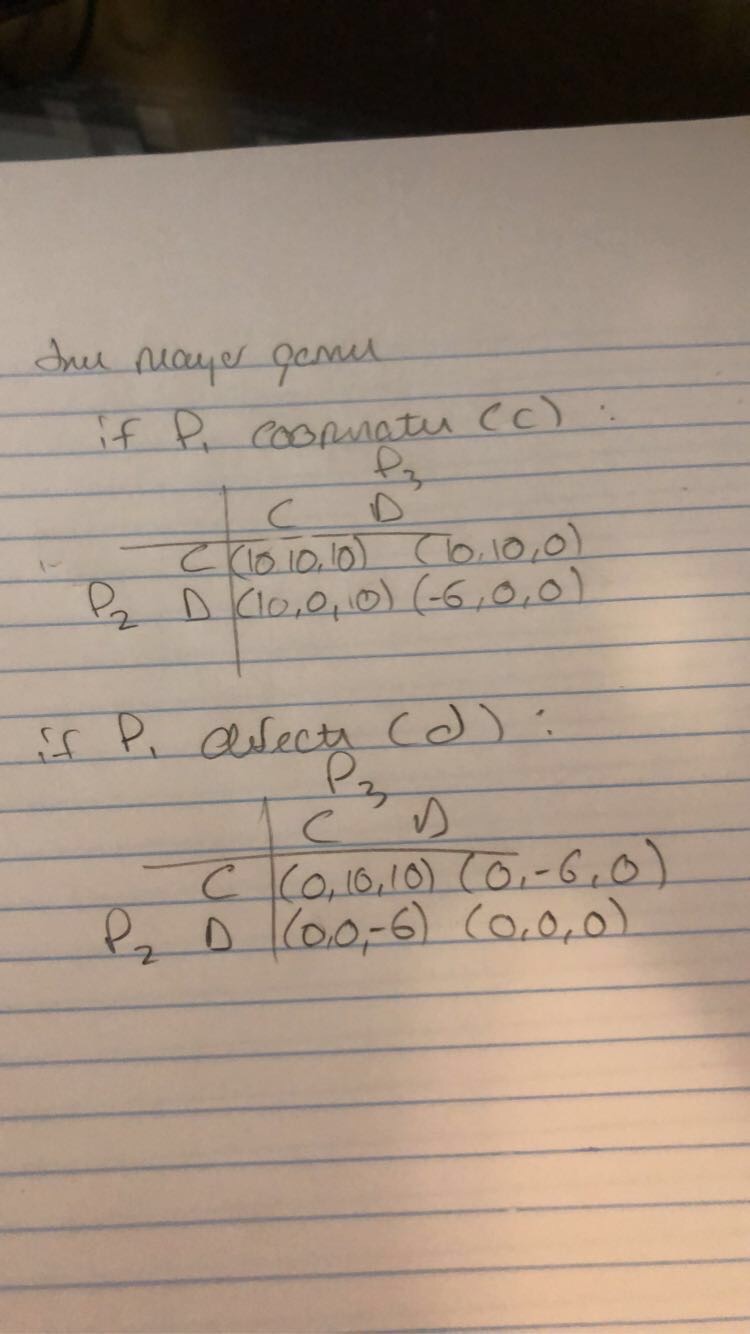 three player game
if P₁ cooperates (c) :
P₃
C D
C (10 10,10) (10,10,0)
P₂ D (10,0,10) (-6,0,0)
if P₁ defects (d) :
P₃
C D
C (0,10,10) (0,-6,0)
P₂ D (0,0,-6) (0,0,0)